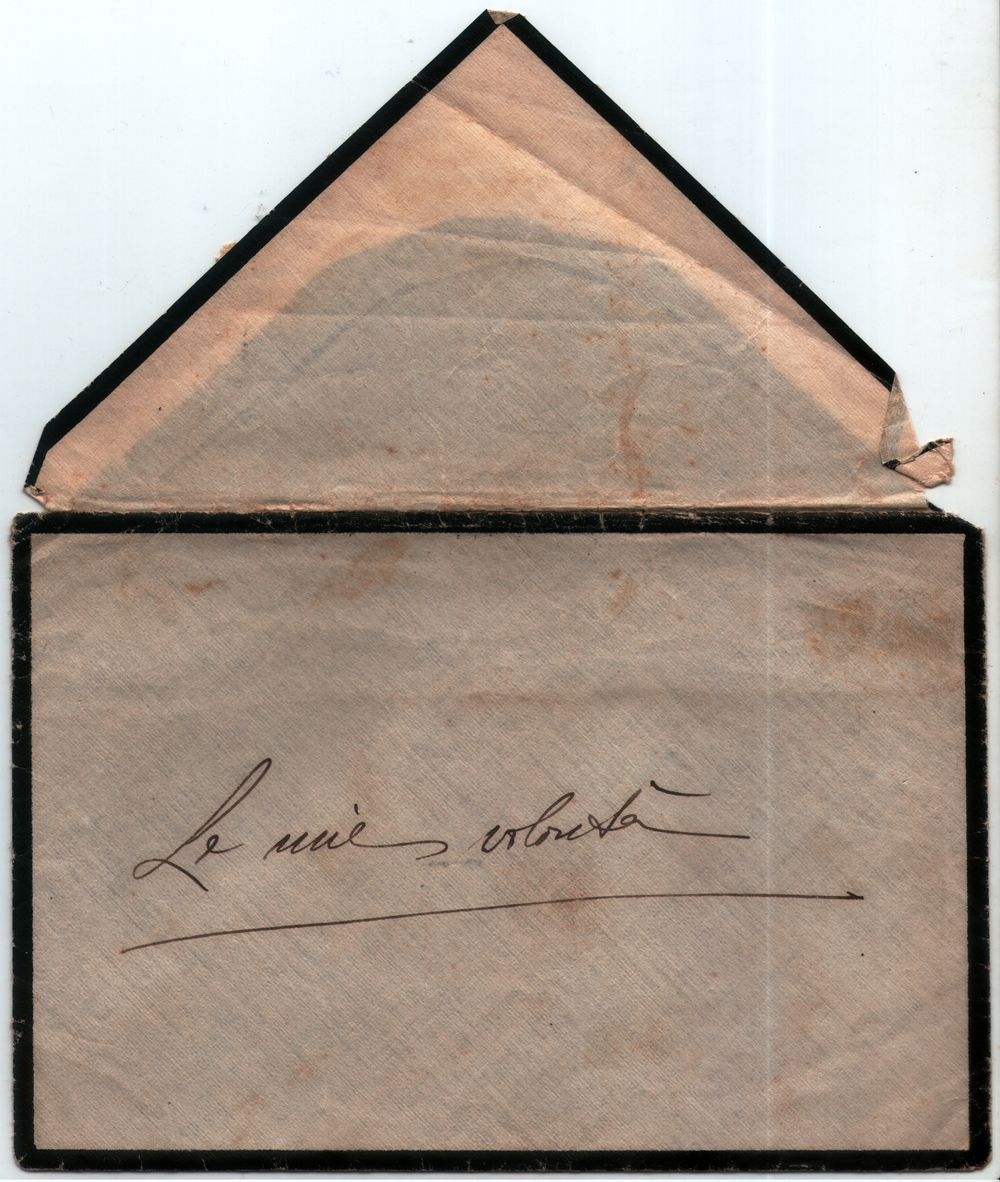 Le mie volontà